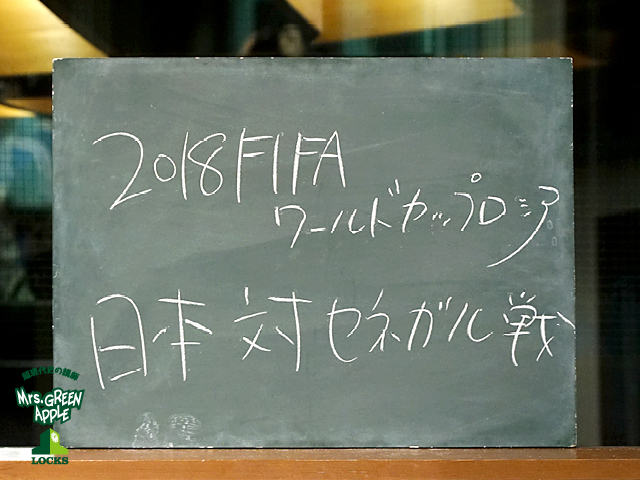 2018 FIFA
ワールドカップロシア
日本対セネガル戦
Mrs. GREEN
APPLE
LOCKS